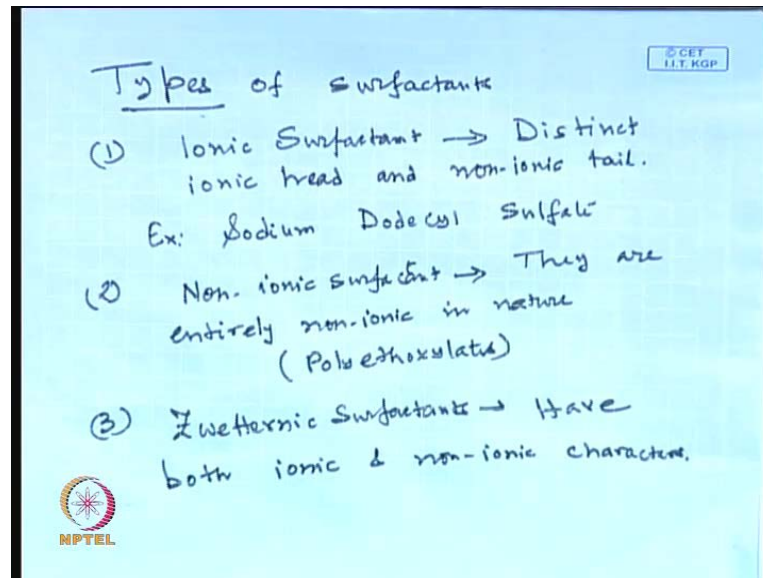 © CET
I.I.T. KGP
Types of surfactants
(1) Ionic Surfactant → Distinct
ionic head and non-ionic tail.
Ex: Sodium Dodecyl Sulfate
(2) Non-ionic surfactant → They are
entirely non-ionic in nature
(Polyethoxylates)
(3) Zwetternic Surfactants → Have
both ionic & non-ionic characters.
NPTEL